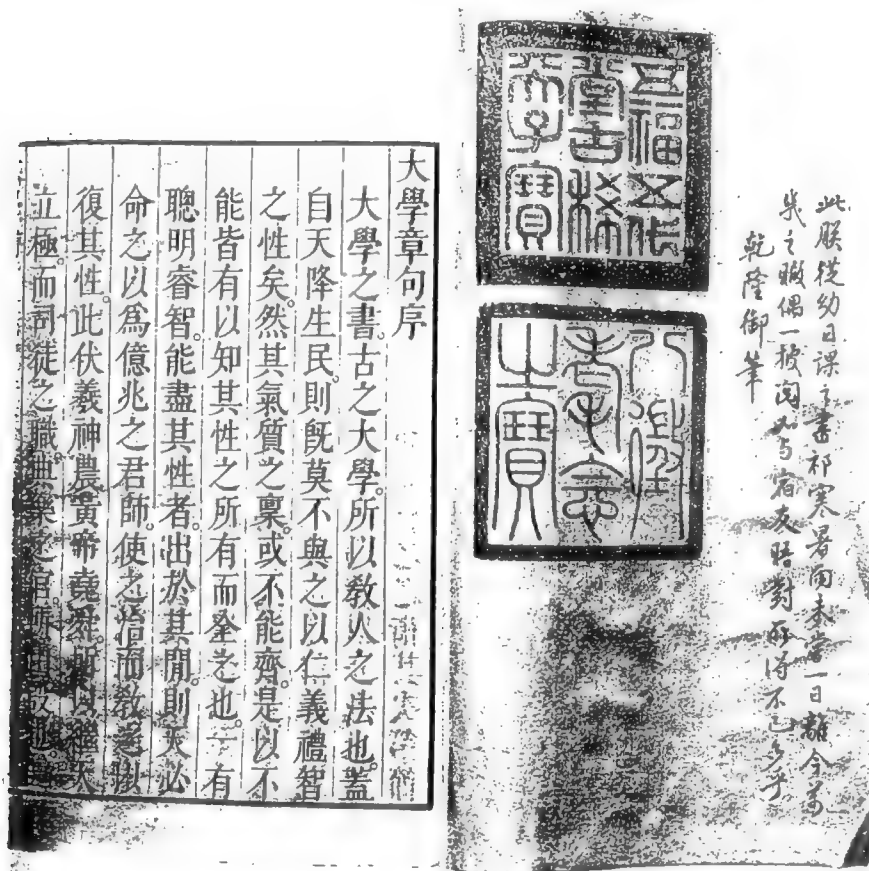 此朕從幼日課之書祁寒暑雨未嘗一日離今萬
幾之暇偶一披閱如与宿友晤對所得不已多乎
乾隆御筆
五福五代
堂古稀
天子寶
八徵
耄念
之寶
大學章句序
大學之書。古之大學。所以敎人之法也。蓋
自天降生民。則旣莫不與之以仁義禮智
之性矣。然其氣質之稟。或不能齊。是以不
能皆有以知其性之所有而全之也。一有
聰明睿智。能盡其性者。出於其閒。則天必
命之以爲億兆之君師。使之治而敎之。以
復其性。此伏羲神農黃帝堯舜。所以繼天
立極。而司徒之職典樂之官所由設也。